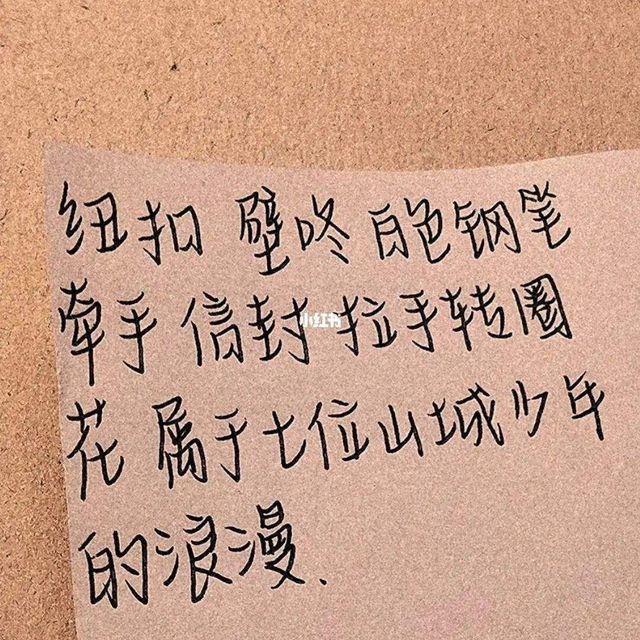 纽扣 壁咚 白色钢笔
牵手 信封 拉手转圈
小红书
花 属于七位山城少年
的浪漫、